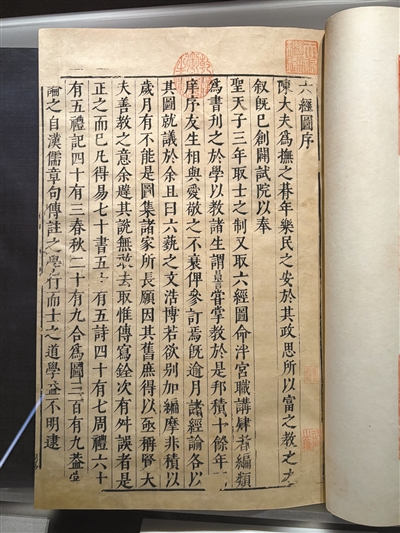 六經圖序
陳大夫爲撫之朞年樂民之安於其政思所以富之教之之
叙旣已創闢試院以奉
聖天子三年取士之制又取六經圖命泮宮職講肄者編類
爲書刋之於學以教諸生謂嘗掌教於是邦積十餘年
庠序友生相與愛敬之不衰俾參訂焉旣逾月諸經論各以
其圖就議於余且曰六藝之文浩博若欲别加編摩非積以
歲月有不能是圖集諸家所長願因其舊庶得以亟稱賢大
夫善教之意余韙其說無敢去取惟傳寫銓次有舛誤者是
正之而已凡得易七十書五十有五詩四十有七周禮六十
有五禮記四十有三春秋二十有九合爲圖三百有九蓋嘗
論之自漢儒章句傳註之學行而士之道學益不明逮